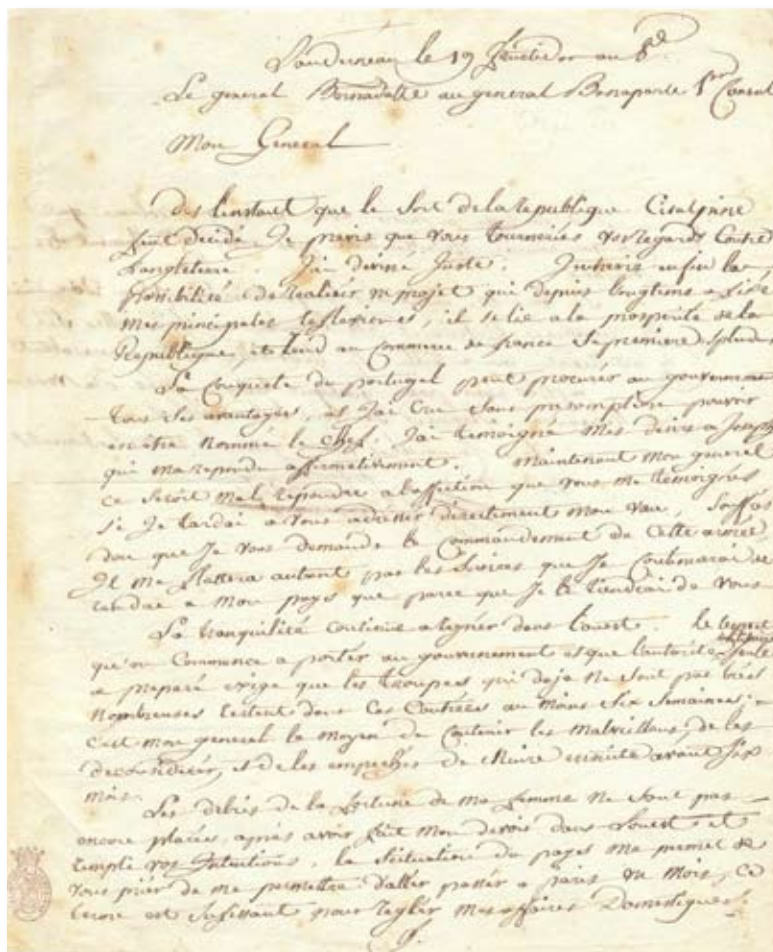 le 19 fructidor an 8e
Le general Bernadotte au general Bonaparte 1er Consul
Mon General
des l'instant que le sort de la republique Cisalpine
fut decidé, Je previs que vous tourneriés vos regards contre
L'angleterre. J'ai deviné Juste. enfin la
possibilité de realiser un projet qui depuis longtems a fixé
mes principales reflexions, il se lie a la prosperité de la
Republique, et rend au commerce de france sa premiere splendeur
La Conquete du portugal peut procurer au gouvernement
tous ces avantages, et J'ai cru sans presomption pouvoir
en être nommé le chef. J'ai temoigné mes desirs a Joseph
qui m'a repondu affirmativement. Maintenant mon general
ce seroit mal repondre a l'affection que vous me temoignés
si Je tardai a vous adresser directement mon vœu, souffrés
donc que Je vous demande le Commandement de cette armée,
Il me flattera autant par les services que Je
rendre a mon pays que parce que Je le tiendrai de vous
La tranquilité continue a regner dans l'ouest. le respect
qu'on Commence a porter au gouvernement et que l'autorité seule
a preparé exige que les troupes qui deja ne sont pas très
nombreuses restent dans ces Contrées au moins six semaines;
c'est mon general le moyen de contenir les malveillans, de les
et de les empecher de nuire ensuite avant six
mois.
Les debris de la fortune de ma femme ne sont pas
encore placés, après avoir fait mon devoir dans l'ouest et
rempli vos Intentions, la situation du pays me permet de
vous prier de me permettre d'aller passer a paris un mois, ce
terme est suffisant pour regler mes affaires Domestiques.